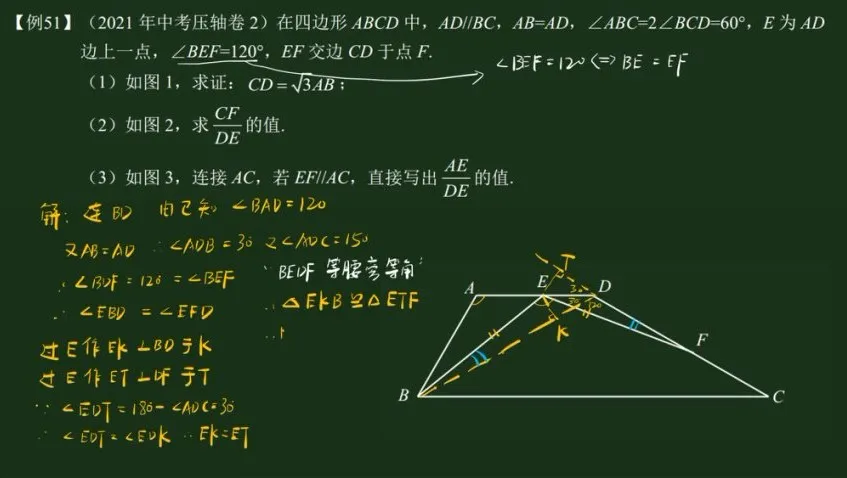 【例51】（2021年中考压轴卷2）在四边形ABCD中，AD//BC，AB=AD，∠ABC=2∠BCD=60°，E为AD
边上一点，∠BEF=120°，EF交边CD于点F.
∠BEF=120<=>BE=EF
（1）如图1，求证：CD=√3AB；
（2）如图2，求CF/DE的值.
（3）如图3，连接AC，若EF//AC，直接写出AE/DE的值.
解：连BD 由已知 ∠BAD=120
又AB=AD ∴∠ADB=30 又∠ADC=150
∴∠BDF=120=∠BEF
∴∠EBD=∠EFD
过E作EK⊥BD于K
过E作ET⊥DF于T
∵∠EDT=180-∠ADC=30
∴∠EDT=∠EDK ∴EK=ET
∵BEDF等腰旁等角
∴△EKB≌△ETF
∴
T
A
E
D
30
30
120
K
F
B
C